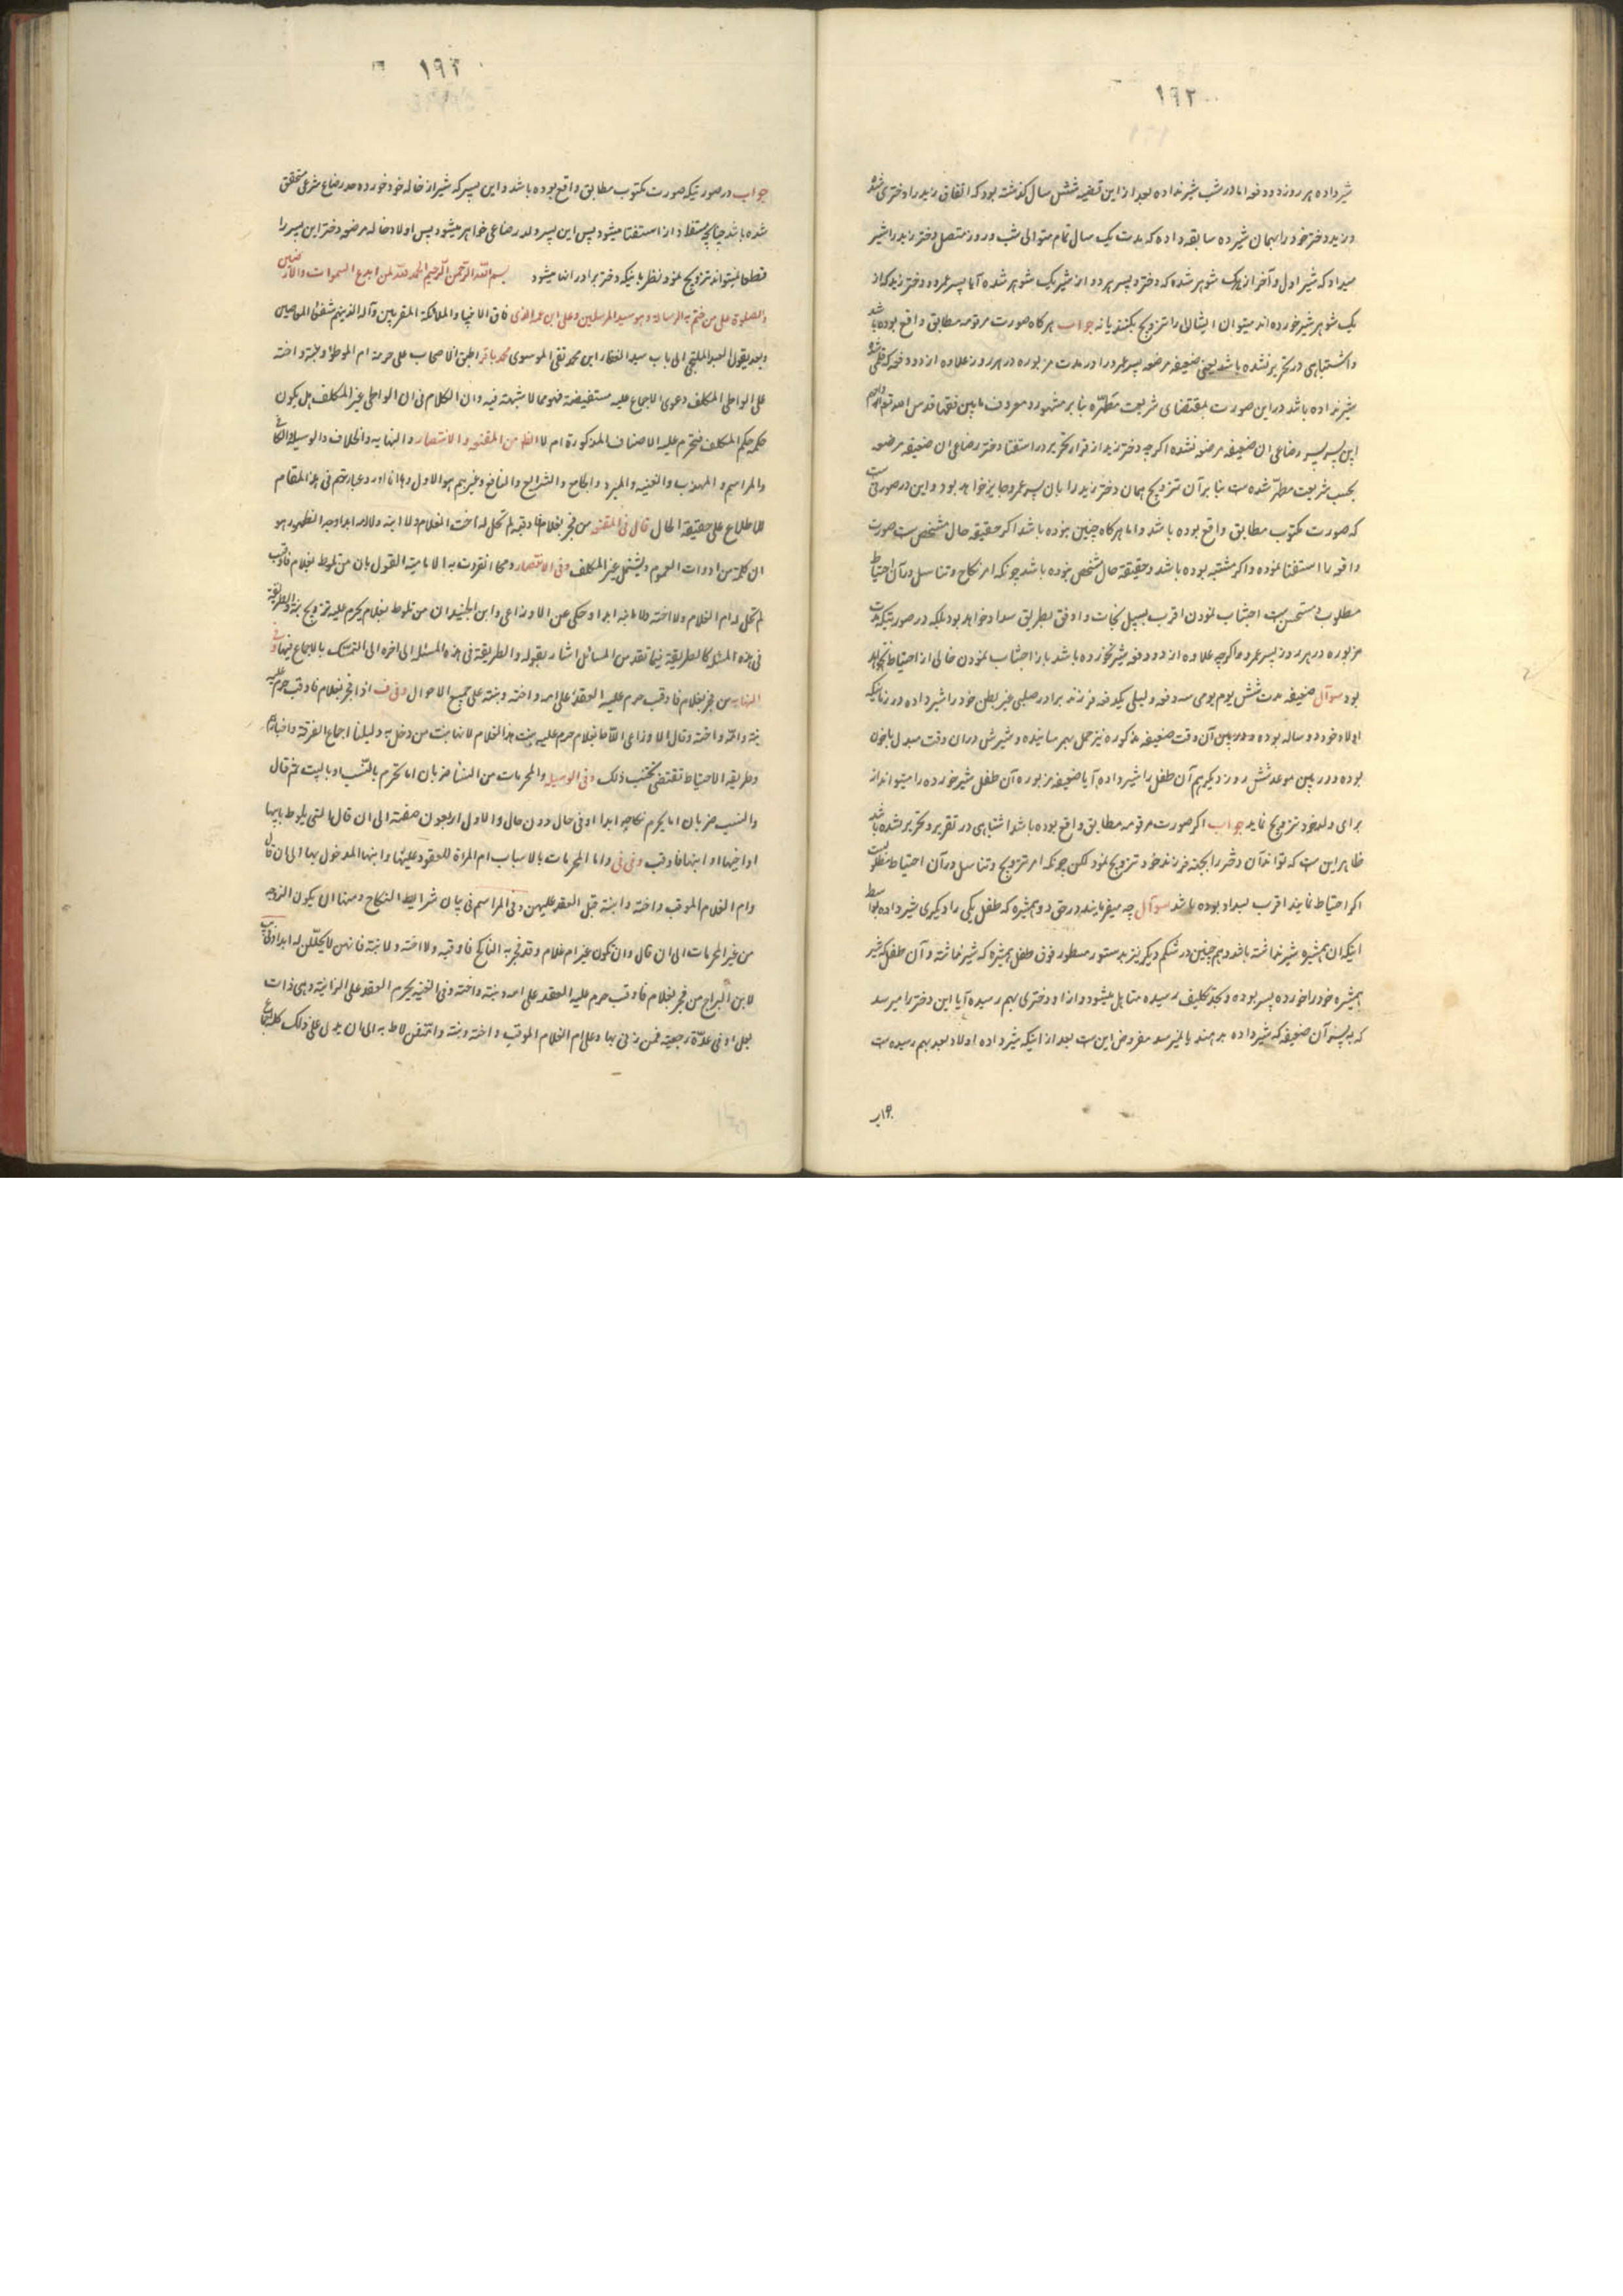 ۱۹۲
شیر داده هر روز دو دفعه اما در شب شیر نداده بعد از این قضیه شش سال گذشته بود که اتفاق زید را دختری شد
و زید دختر خود را بهمان شیر ده سابقه داده که مدت یک سال تمام متوالی شب و روز متصل دختر زید را شیر
میداد که شیر اول و آخر از یک شوهر شده که دختر و پسر هر دو از شیر یک شوهر شده آیا پسر عمرو و دختر زید که از
یک شوهر شیر خورده اند میتوان ایشان را تزویج بکنند یا نه جواب هر گاه صورت مرقومه مطابق واقع بوده باشد
و اشتباهی در تحریر نشده باشد یعنی ضعیفه مرضعه پسر عمرو را در مدت مزبوره در هر روز علاوه از دو دفعه که قلمی شده
شیر نداده باشد در این صورت بمقتضای شریعت مطهّره بنا بر مشهور و معروف ما بین فقها قدس الله تعالی ارواحهم
این پسر پسر رضاعی ان ضعیفه مرضعه نشده اگر چه دختر زید از قرار تحریر در استفتا دختر رضاعی ان ضعیفه مرضعه
بحسب شریعت مطهّر شده ست بنا بر آن تزویج همان دختر زید را بان پسر عمرو جایز خواهد بود و این در صورتی ست
که صورت مکتوب مطابق واقع بوده باشد و اما هر گاه چنین نبوده باشد اگر حقیقه حال مشخص ست صورت
واقعه را استفتا نموده و اگر مشتبه بوده باشد و حقیقة حال مشخص نبوده باشد چونکه امر نکاح و تناسل و در آن احتیاط
مطلوب و مستحسن ست اجتناب نمودن اقرب بسبیل نجات و اوفق بطریق سداد خواهد بود بلکه در صورتیکه مدت
مزبوره در هر روز پسر عمرو و اگر چه علاوه از دو دفعه شیر نخورده باشد باز اجتناب نمودن خالی از احتیاط نخواهد
بود سوآل ضعیفه مدت شش یوم یومی سه دفعه و لیلی یکدفعه فرزند برادر صلبی غیر بطن خود را شیر داده در زمانیکه
اولاد خود دو ساله بوده و در بین آن وقت ضعیفه مذکوره نیز حمل بهم رسانیده و شیرش در ان وقت مبدل باخون
بوده و در بین موعد شش روز دیگر هم آن طفل را شیر داده آیا ضعیفه مزبوره آن طفل شیر خورده را میتواند از
برای ولد خود تزویج نماید جواب اگر صورت مرقومه مطابق واقع بوده باشد اشتباهی در تقریر و تحریر نشده باشد
ظاهر این ست که تواند آن دختر را بجهة فرزند خود تزویج نمود لکن چونکه امر تزویج و تناسل و در آن احتیاط مطلوب ست
اگر احتیاط نمایند اقرب بسداد بوده باشد سوآل چه میفرمایند در حق دو همشیره که طفل یکی را دیگری شیر داده بواسط
اینکه ان همشیره شیر نداشته باشد و هم چنین در شکم دیگر نیز بدستور مسطور فوق طفل همشیره که شیر نداشته و آن طفل که شیر
همشیره خود را خورده پسر بوده و بحد تکلیف رسیده متاهل میشود و از او دختری بهم رسیده آیا این دختر را میرسد
که به پسر آن ضعیفه که شیر داده بدهند یا نمیرسد مفروض این ست بعد از اینکه شیر داده اولاد بعد بهم رسیده ست
جواب
۱۹۳
جواب در صورتیکه صورت مکتوب مطابق واقع بوده باشد و این پسر که شیر از خاله خود خورده حد رضاع شرعی متحقق
شده باشد چنانچه مستفاد از استفتا میشود پس این پسر ولد رضاعی خواهر میشود پس اولاد خاله مرضعه دختر این پسر را
قطعا نمیتواند تزویج نمود نظر باینکه دختر برادر انها میشود بسم اللّه الرّحمن الرّحیم الحمد للّه لمن ابدع السموات والارضین
والصلوة علی من ختم به الرساله و هو سید المرسلین و علی ابن عمه الذی فاق الانبیا و الملائکة المقربین و آله الذینهم شفعاء العاصین
و بعد یقول العبد الملتجی الی باب سید الغفار ابن محمد نقی الموسوی محمد باقر اطبق الاصحاب علی حرمة ام الموطؤ و بنته و اخته
علی الواطی المکلف دعوی الاجماع علیه مستفیضة فهو مما لا شبهة فیه و ان الکلام فی ان الواطی غیر المکلف هل یکون
حکمه حکم المکلف فتحرم علیه الاصناف المذکورة ام لا الظ من المقنعه والانتصار و النهایه و الخلاف والوسیلة والکافی
والمراسم و المهذب و الغنیه و السرائر و الجامع و الشرایع و النافع و غیرهم هو الاول و ها انا اورد عبارتهم فی هذا المقام
للاطلاع علی حقیقة الحال قال فی المقنعه من فجر بغلام فاوقبه لم تحل له اخت الغلام و لا ابنه و لا امه ابدا وجه الظهور هو
ان کلمة من ادوات العموم و لیشمل غیر المکلف و فی الانتصار و مما انفردت به الامامیة القول بان من تلوط بغلام فاوقب
لم تحل له ام الغلام و لا اخته و لا ابنه ابدا و حکی عن الاوزاعی و ابن الحنبل ان من تلوط بغلام یحرم علیه تزویج بنته و الطریقة
فی هذه المسئلة کالطریقة فیما تقدم من المسائل اشار بقوله و الطریقة فی هذه المسئله الی اخره الی التمسک بالاجماع فیها و فی
النهایه من فجر بغلام فاوقب حرم علیه العقد علی امه و اخته و بنته علی جمیع الاحوال و فی ف اذا فجر بغلام فاوقب حرم علیه
بنته و امه و اخته و قال الاوزاعی اذا لاط بغلام حرم علیه بنت هذا الغلام لانها بنت من دخل به دلیلنا اجماع الفرقة و اخبارهم
و طریقه الاحتیاط تقتضی تجنب ذلک و فی الوسیله و المحرمات من النسأ ضربان اما تحرم بالنّسب او بالسبب ثم قال
والسبب ضربان اما یحرم نکاحه ابدا او فی حال دون حال و الاول اربعون صنفة الی ان قال و التی یلوط بابیها
او اخیها او ابنها فاوقب و فی فی و اما المحرمات بالاسباب ام المراة المعقود علیها و ابنها المدخول بها الی ان قال
و ام الغلام الموقب و اخته و ابنته قبل العقد علیهن و فی المراسم فی بیان شرایط النکاح و منها ان یکون الزوجه
من غیر المحرمات الی ان قال و ان تکون غیر ام غلام و قد فجر به الناکح فاوقبه و لا اخته و لا بنته فانهن لا یحللن له ابدا و فی
لابن البراج من فجر بغلام فاوقب حرم علیه العقد علی امه و بنته و اخته و فی الغنیه یحرم العقد علی الزانیة و هی ذات
بعل او فی عدّة رجعیة ممن زنی بها و علی ام الغلام الموقب و اخته و بنته و